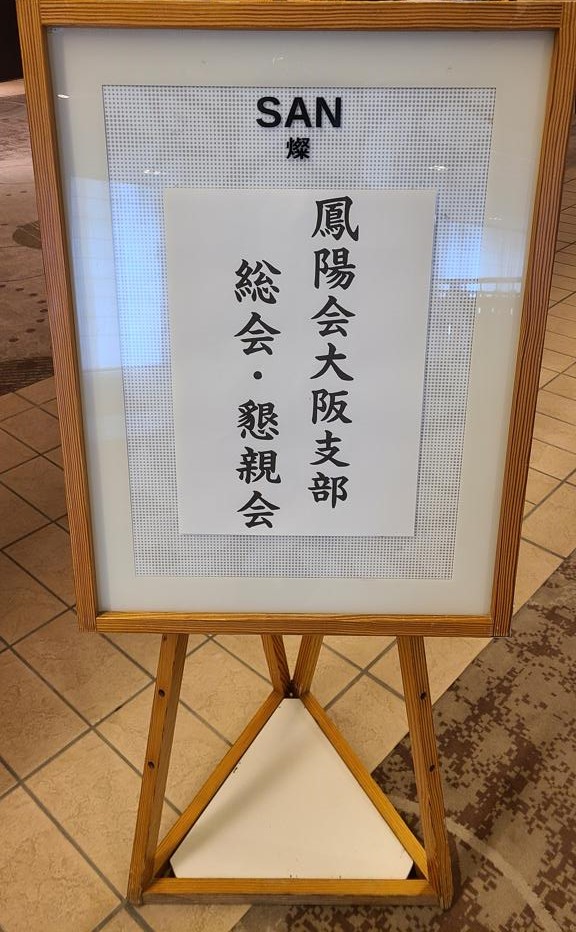 SAN
燦
鳳陽会大阪支部
総会・懇親会